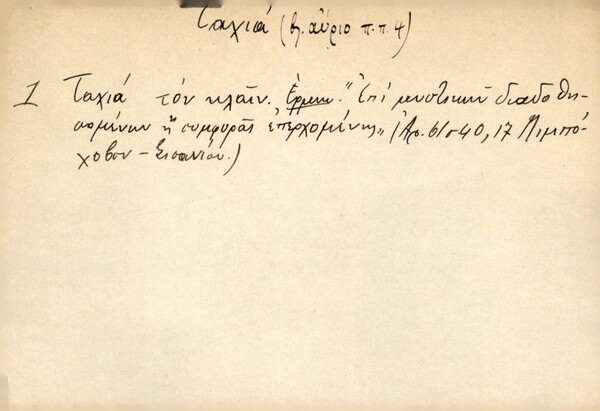 Ταχιά (βλ. αὔριο π.π. 4)
1 Ταχιά τὸν κλαῖν. Ἑρμην. "Ἐπὶ μυστικῶν διαδοθη-
σομένων ἢ συμφορᾶς ἐπερχομένης" (Ἀρ. 6140, 17 Λιμπό-
χοβον - Σισανίου.)